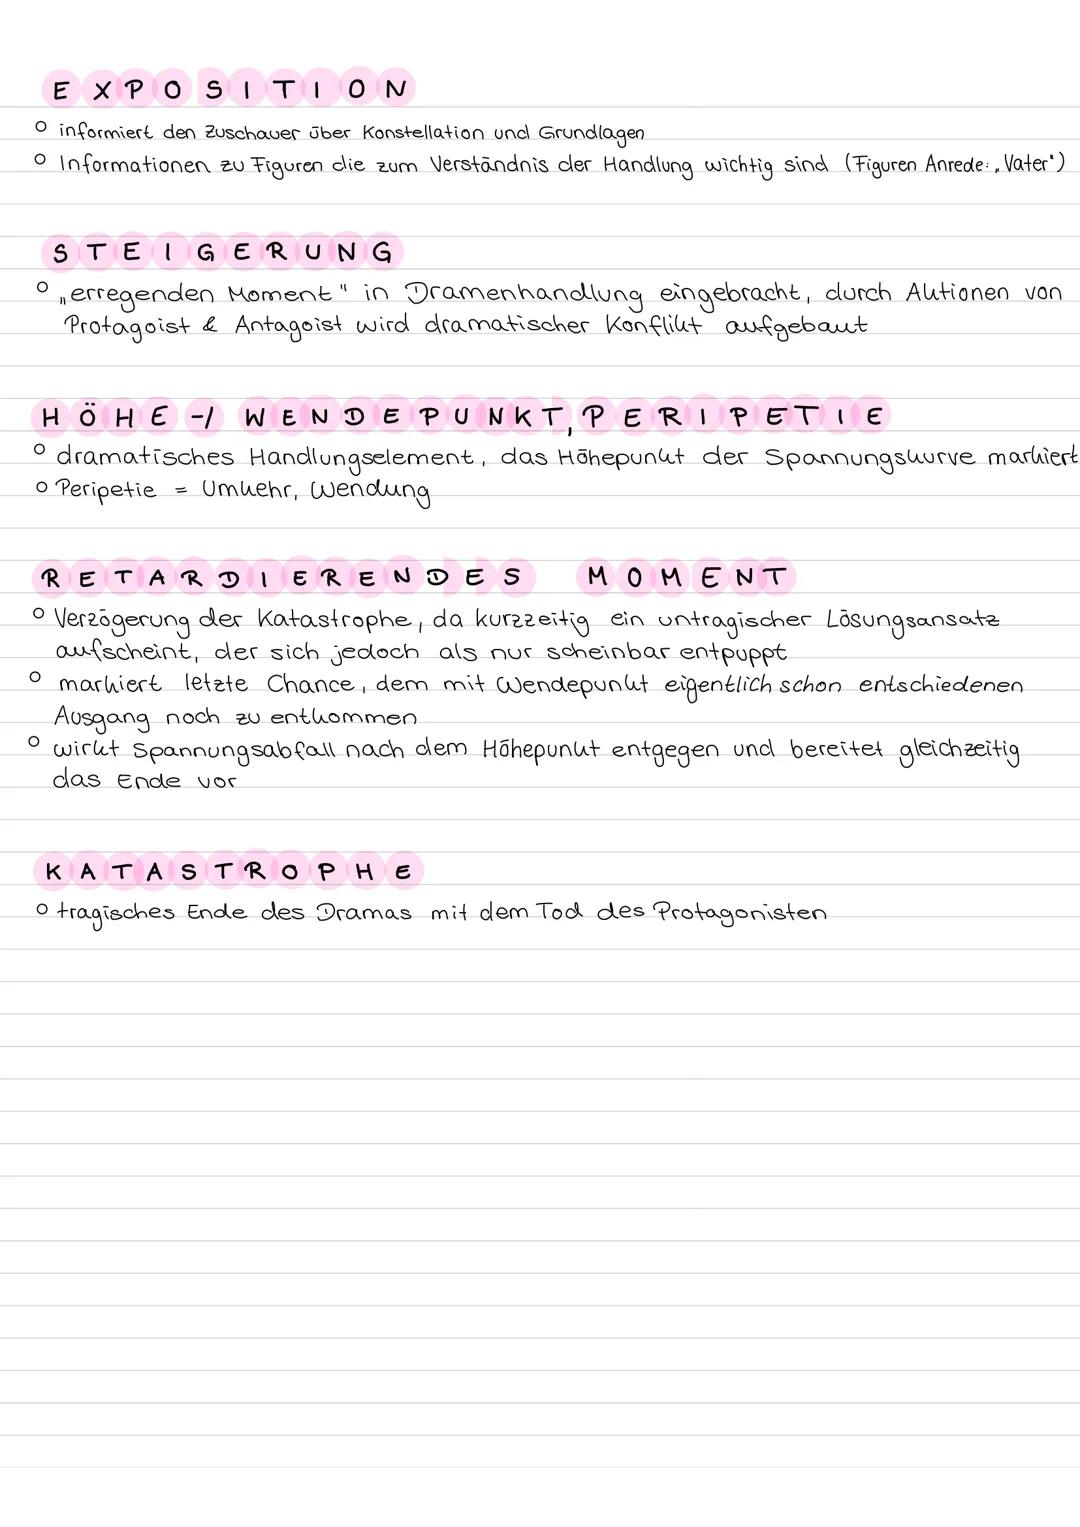 EXPOSITION
○ informiert den Zuschauer über Konstellation und Grundlagen
○ Informationen zu Figuren die zum Verständnis der Handlung wichtig sind (Figuren Anrede: „Vater")
STEIGERUNG
○ „erregenden Moment" in Dramenhandlung eingebracht, durch Aktionen von
Protagoist & Antagoist wird dramatischer Konflikt aufgebaut
HÖHE-/ WENDEPUNKT, PERIPETIE
○ dramatisches Handlungselement, das Höhepunkt der Spannungskurve markiert
○ Peripetie = Umkehr, Wendung
RETARDIERENDES MOMENT
○ Verzögerung der Katastrophe, da kurzzeitig ein untragischer Lösungsansatz
aufscheint, der sich jedoch als nur scheinbar entpuppt
○ markiert letzte Chance, dem mit Wendepunkt eigentlich schon entschiedenen
Ausgang noch zu entkommen
○ wirkt Spannungsabfall nach dem Höhepunkt entgegen und bereitet gleichzeitig
das Ende vor
KATASTROPHE
○ tragisches Ende des Dramas mit dem Tod des Protagonisten